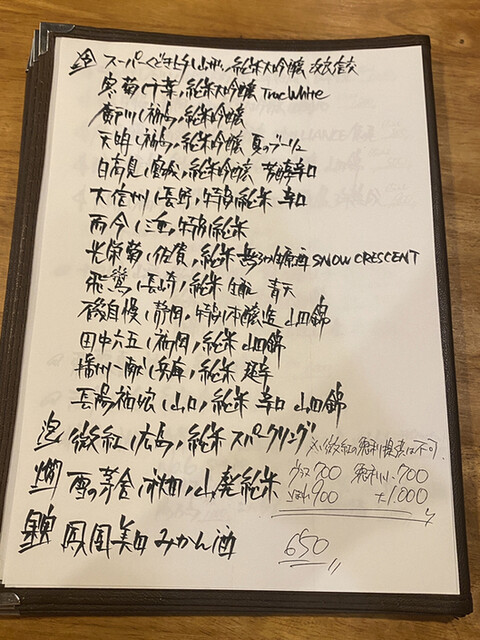 スーパーくどき上手(山形)純米大吟醸 改良信交
寒菊(千葉)純米大吟醸 True White
廣戸川(福島)純米吟醸
天明(福島)純米吟醸 夏の
日高見(宮城)純米吟醸 芳醇辛口
大信州(長野)特別純米 辛口
而今(三重)特別純米
光栄菊(佐賀)純米 無ろ過生原酒 SNOW CRESCENT
飛鸞(長崎)純米 生酛 青天
磯自慢(静岡)特別本醸造 山田錦
田中六五(福岡)純米 山田錦
播州一献(兵庫)純米 超辛
長陽福娘(山口)純米 辛口 山田錦
泡 微紅(広島)純米 スパークリング
※微紅の徳利提供は不可
燗 雪の茅舎(秋田)山廃純米
グラス 700 徳利小 700
900 大 1,000
鳳凰美田 みかん酒
650